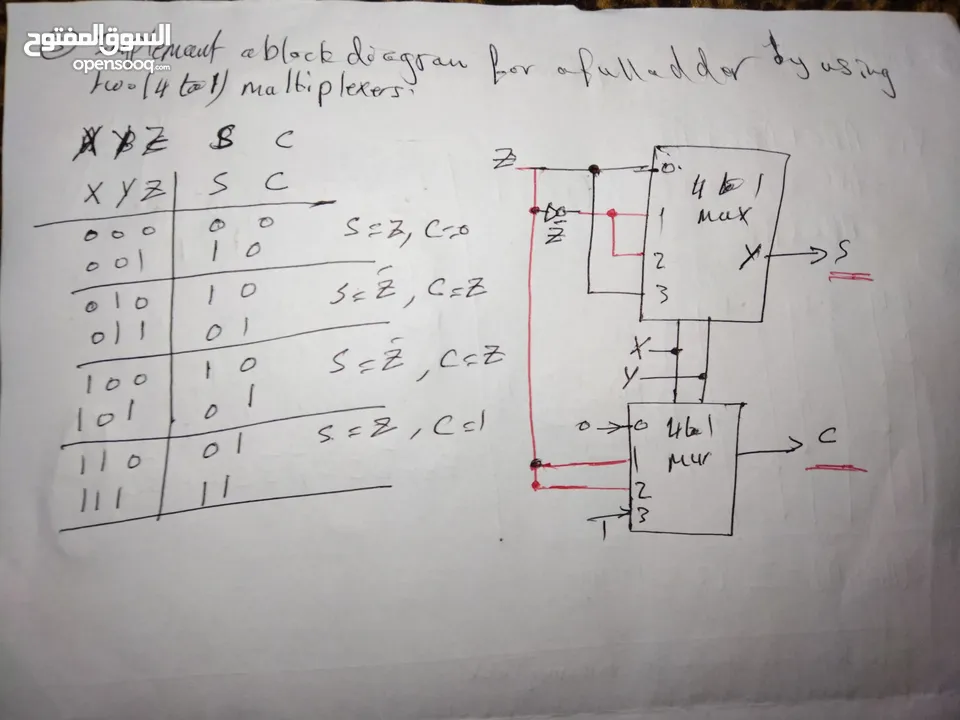 السوق المفتوح
opensooq.com
a block diagram for a full adder by using
two (4 to 1) maltiplexers.
X Y Z S C
X Y Z S C
0 0 0 0 0 S=Z, C=0
0 0 1 1 0
0 1 0 1 0 S=Z̄, C=Z
0 1 1 0 1
1 0 0 1 0 S=Z̄, C=Z
1 0 1 0 1
1 1 0 0 1 S=Z, C=1
1 1 1 1 1
Z 0 4 to 1
mux
Z̄ 1
2 Y S
3
X
Y
0 0 4 to 1 C
1 mux
2
1 3